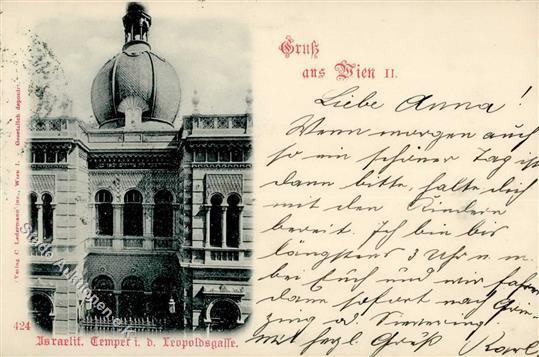 Gruß
aus Wien II.
Liebe Anna!
Wenn morgen auch
so ein schöner Tag ist
dann bitte, halte dich
mit den Kindern
bereit. Ich bin bis
längstens 3 Uhr n. m.
bei Euch und wir fahren
dann sofort nach
mit hzgl. Gruß Karl
424
Israelit. Tempel i. d. Leopoldsgasse.
Verlag C. Ledermann jun., Wien I. Gesetzlich deponirt